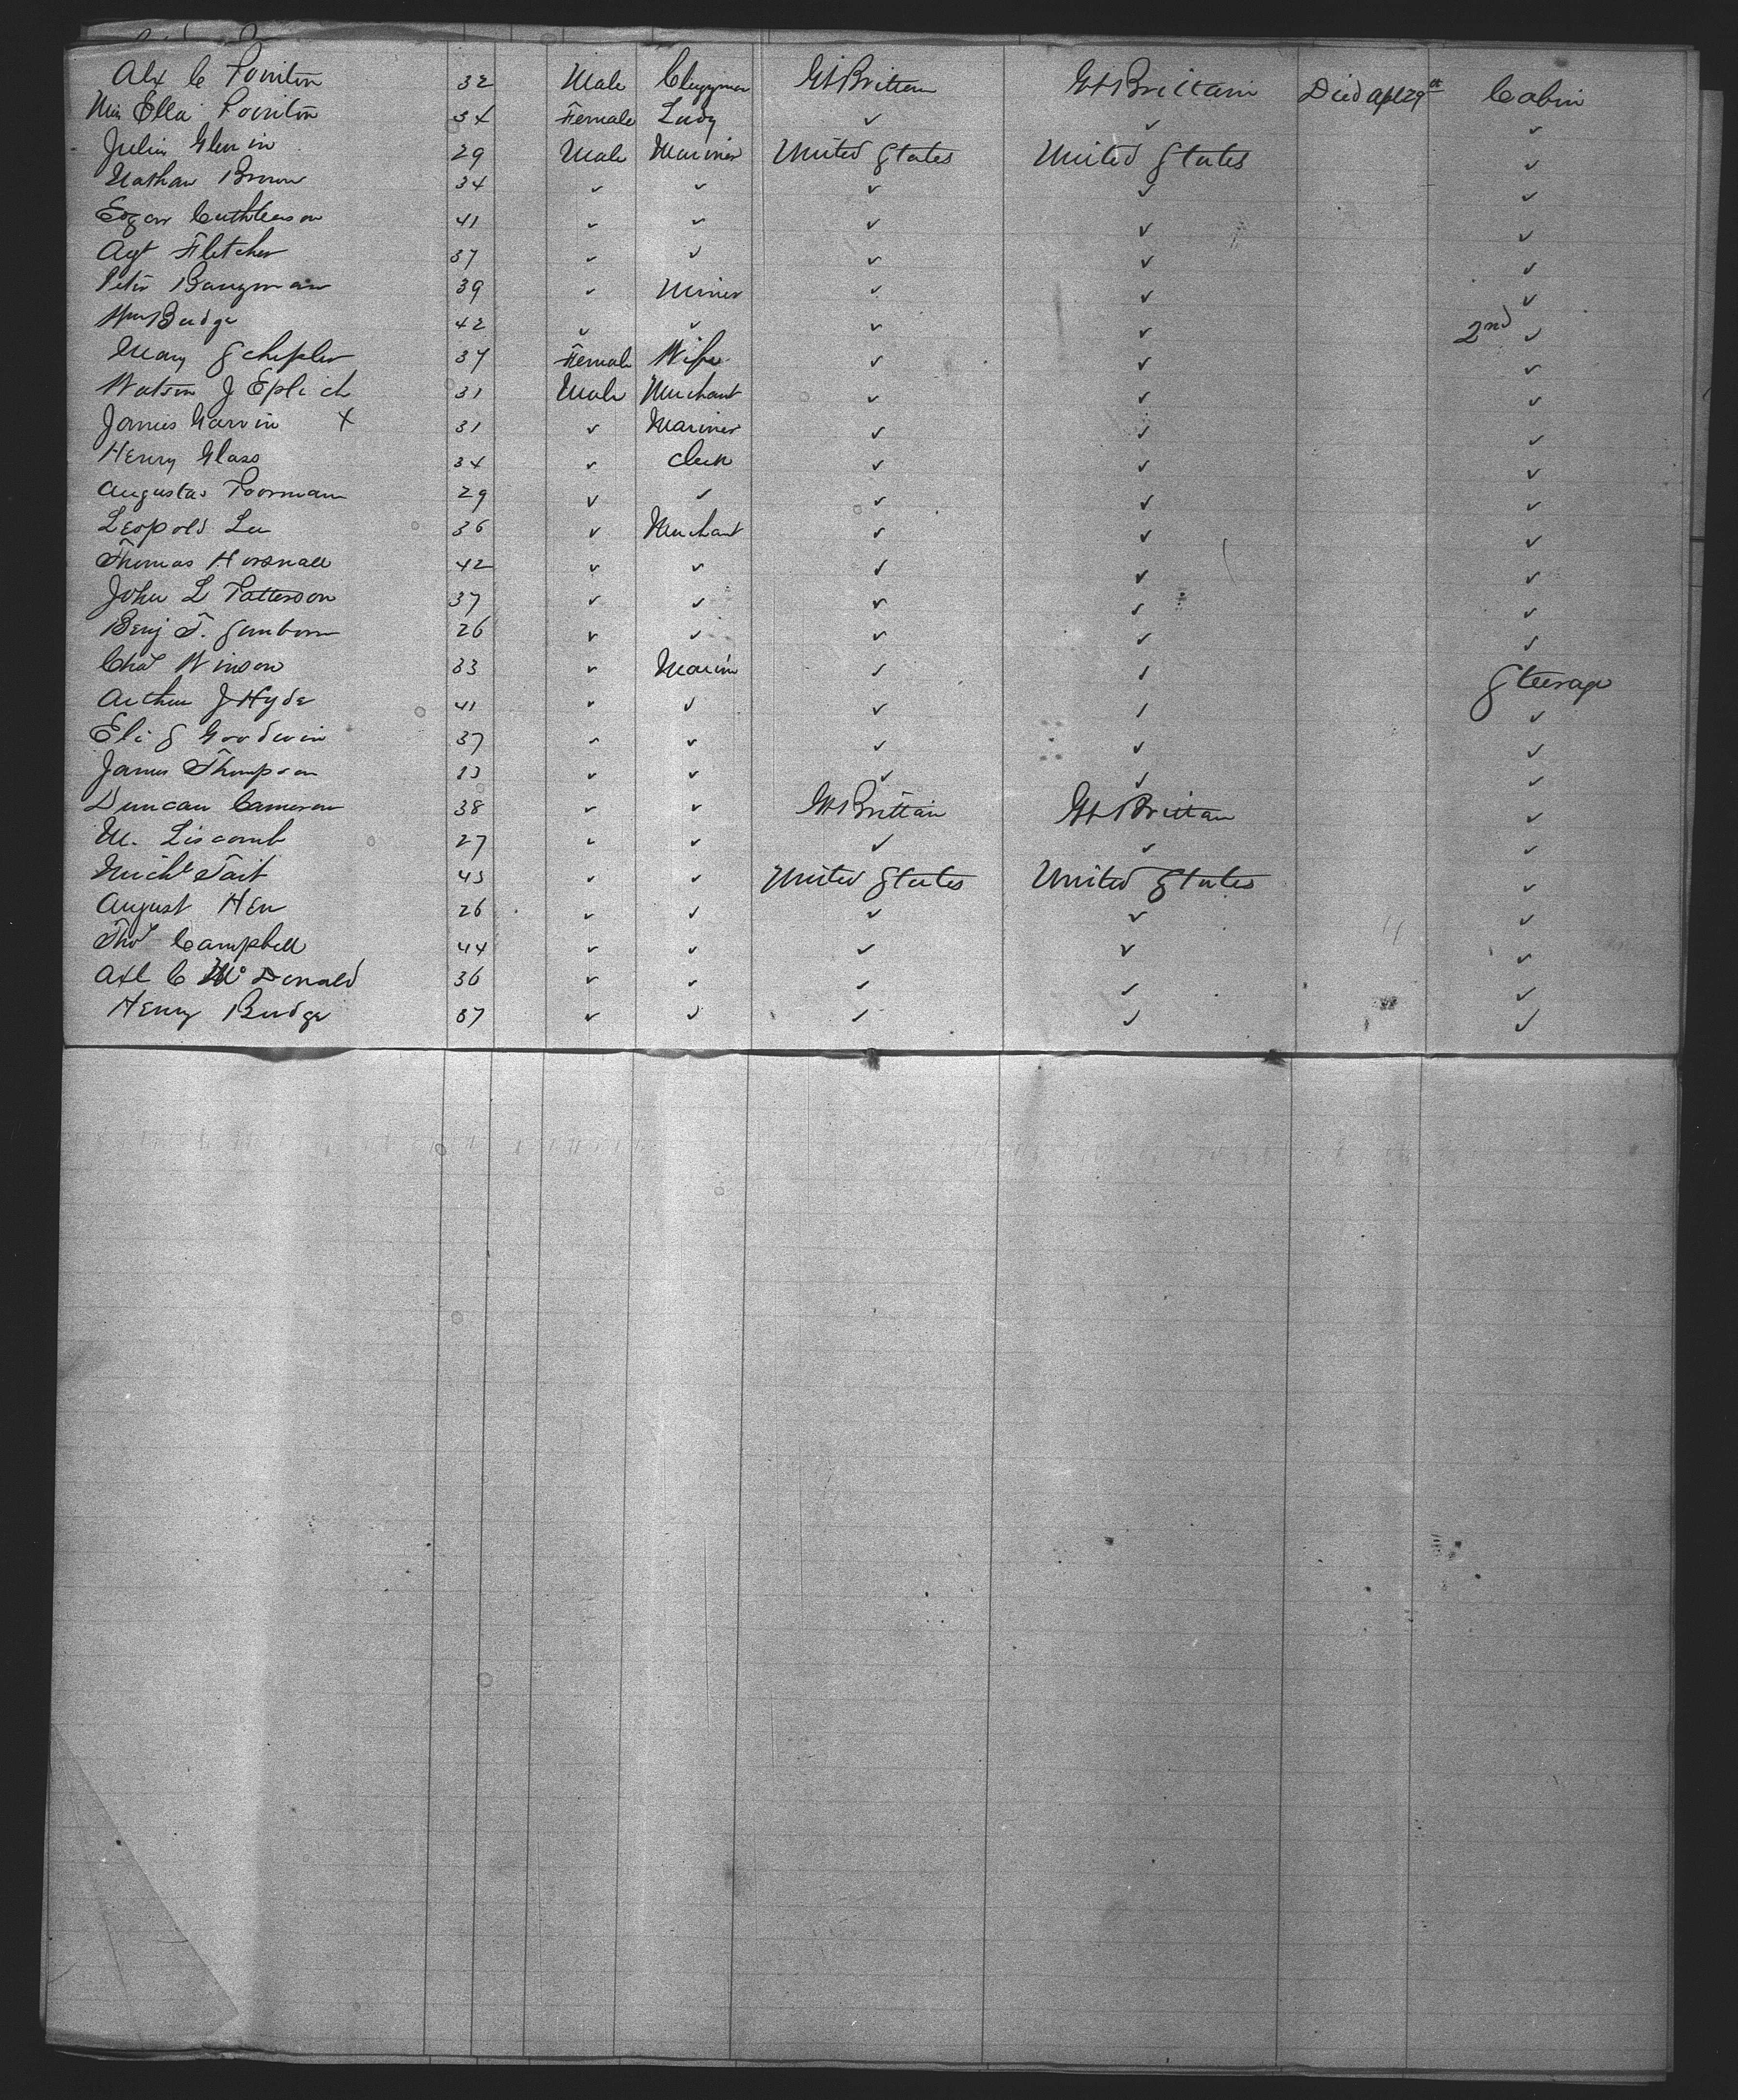 Alex C Pointon 32 Male Clergyman Gt Brittan Gt Brittain Died Apl 29th Cabin
Mis Ella Pointon 34 Female Lady ✓ ✓ ✓
Julius 29 Male Mariner United States United States ✓
Nathan Brown 34 ✓ ✓ ✓ ✓ ✓
Edgar Cuthberson 41 ✓ ✓ ✓ ✓ ✓
Agt Fletcher 37 ✓ ✓ ✓ ✓ ✓
Peter Baugman 39 ✓ Miner ✓ ✓ ✓
Wm Budge 42 ✓ ✓ ✓ ✓ 2nd ✓
Mary Schepler 37 Female Wife ✓ ✓ ✓
Watson J Eplich 31 Male Merchant ✓ ✓ ✓
James Garvin X 31 ✓ Mariner ✓ ✓ ✓
Henry Glass 34 ✓ Clerk ✓ ✓ ✓
Augustus Poorman 29 ✓ ✓ ✓ ✓ ✓
Leopold Lee 36 ✓ Merchant ✓ ✓ ✓
Thomas Horsnall 42 ✓ ✓ ✓ ✓ ✓
John L Patterson 37 ✓ ✓ ✓ ✓ ✓
Benj T. Sanborn 26 ✓ ✓ ✓ ✓ ✓
Chas Winson 33 ✓ Marine ✓ ✓ Steerage
Arthur J Hyde 41 ✓ ✓ ✓ ✓ ✓
Eli S Goodwin 37 ✓ ✓ ✓ ✓ ✓
James Thompson 23 ✓ ✓ ✓ ✓ ✓
Duncan Cameron 38 ✓ ✓ Gt Brittain Gt Brittan ✓
M. Liscomb 27 ✓ ✓ ✓ ✓ ✓
Michl Tait 43 ✓ ✓ United States United States ✓
August Hen 26 ✓ ✓ ✓ ✓ ✓
Thos Campbell 44 ✓ ✓ ✓ ✓ ✓
Axl C McDonald 36 ✓ ✓ ✓ ✓ ✓
Henry Budge 37 ✓ ✓ ✓ ✓ ✓